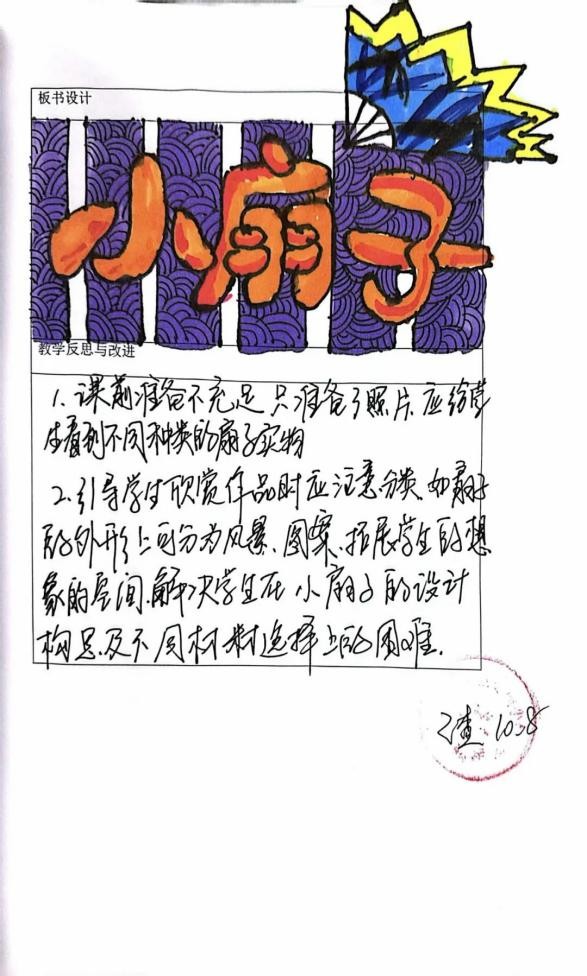 板书设计
小扇子
教学反思与改进
1.课前准备不充足 只准备了照片.应给学
生看到不同种类的扇子实物
2.引导学生欣赏作品时应注意分类.如扇子
的外形上可分为风景、图案、拓展学生的想
象的空间.解决学生在小扇子的设计
构思及不同材料选择上的困难.
已查 10.8